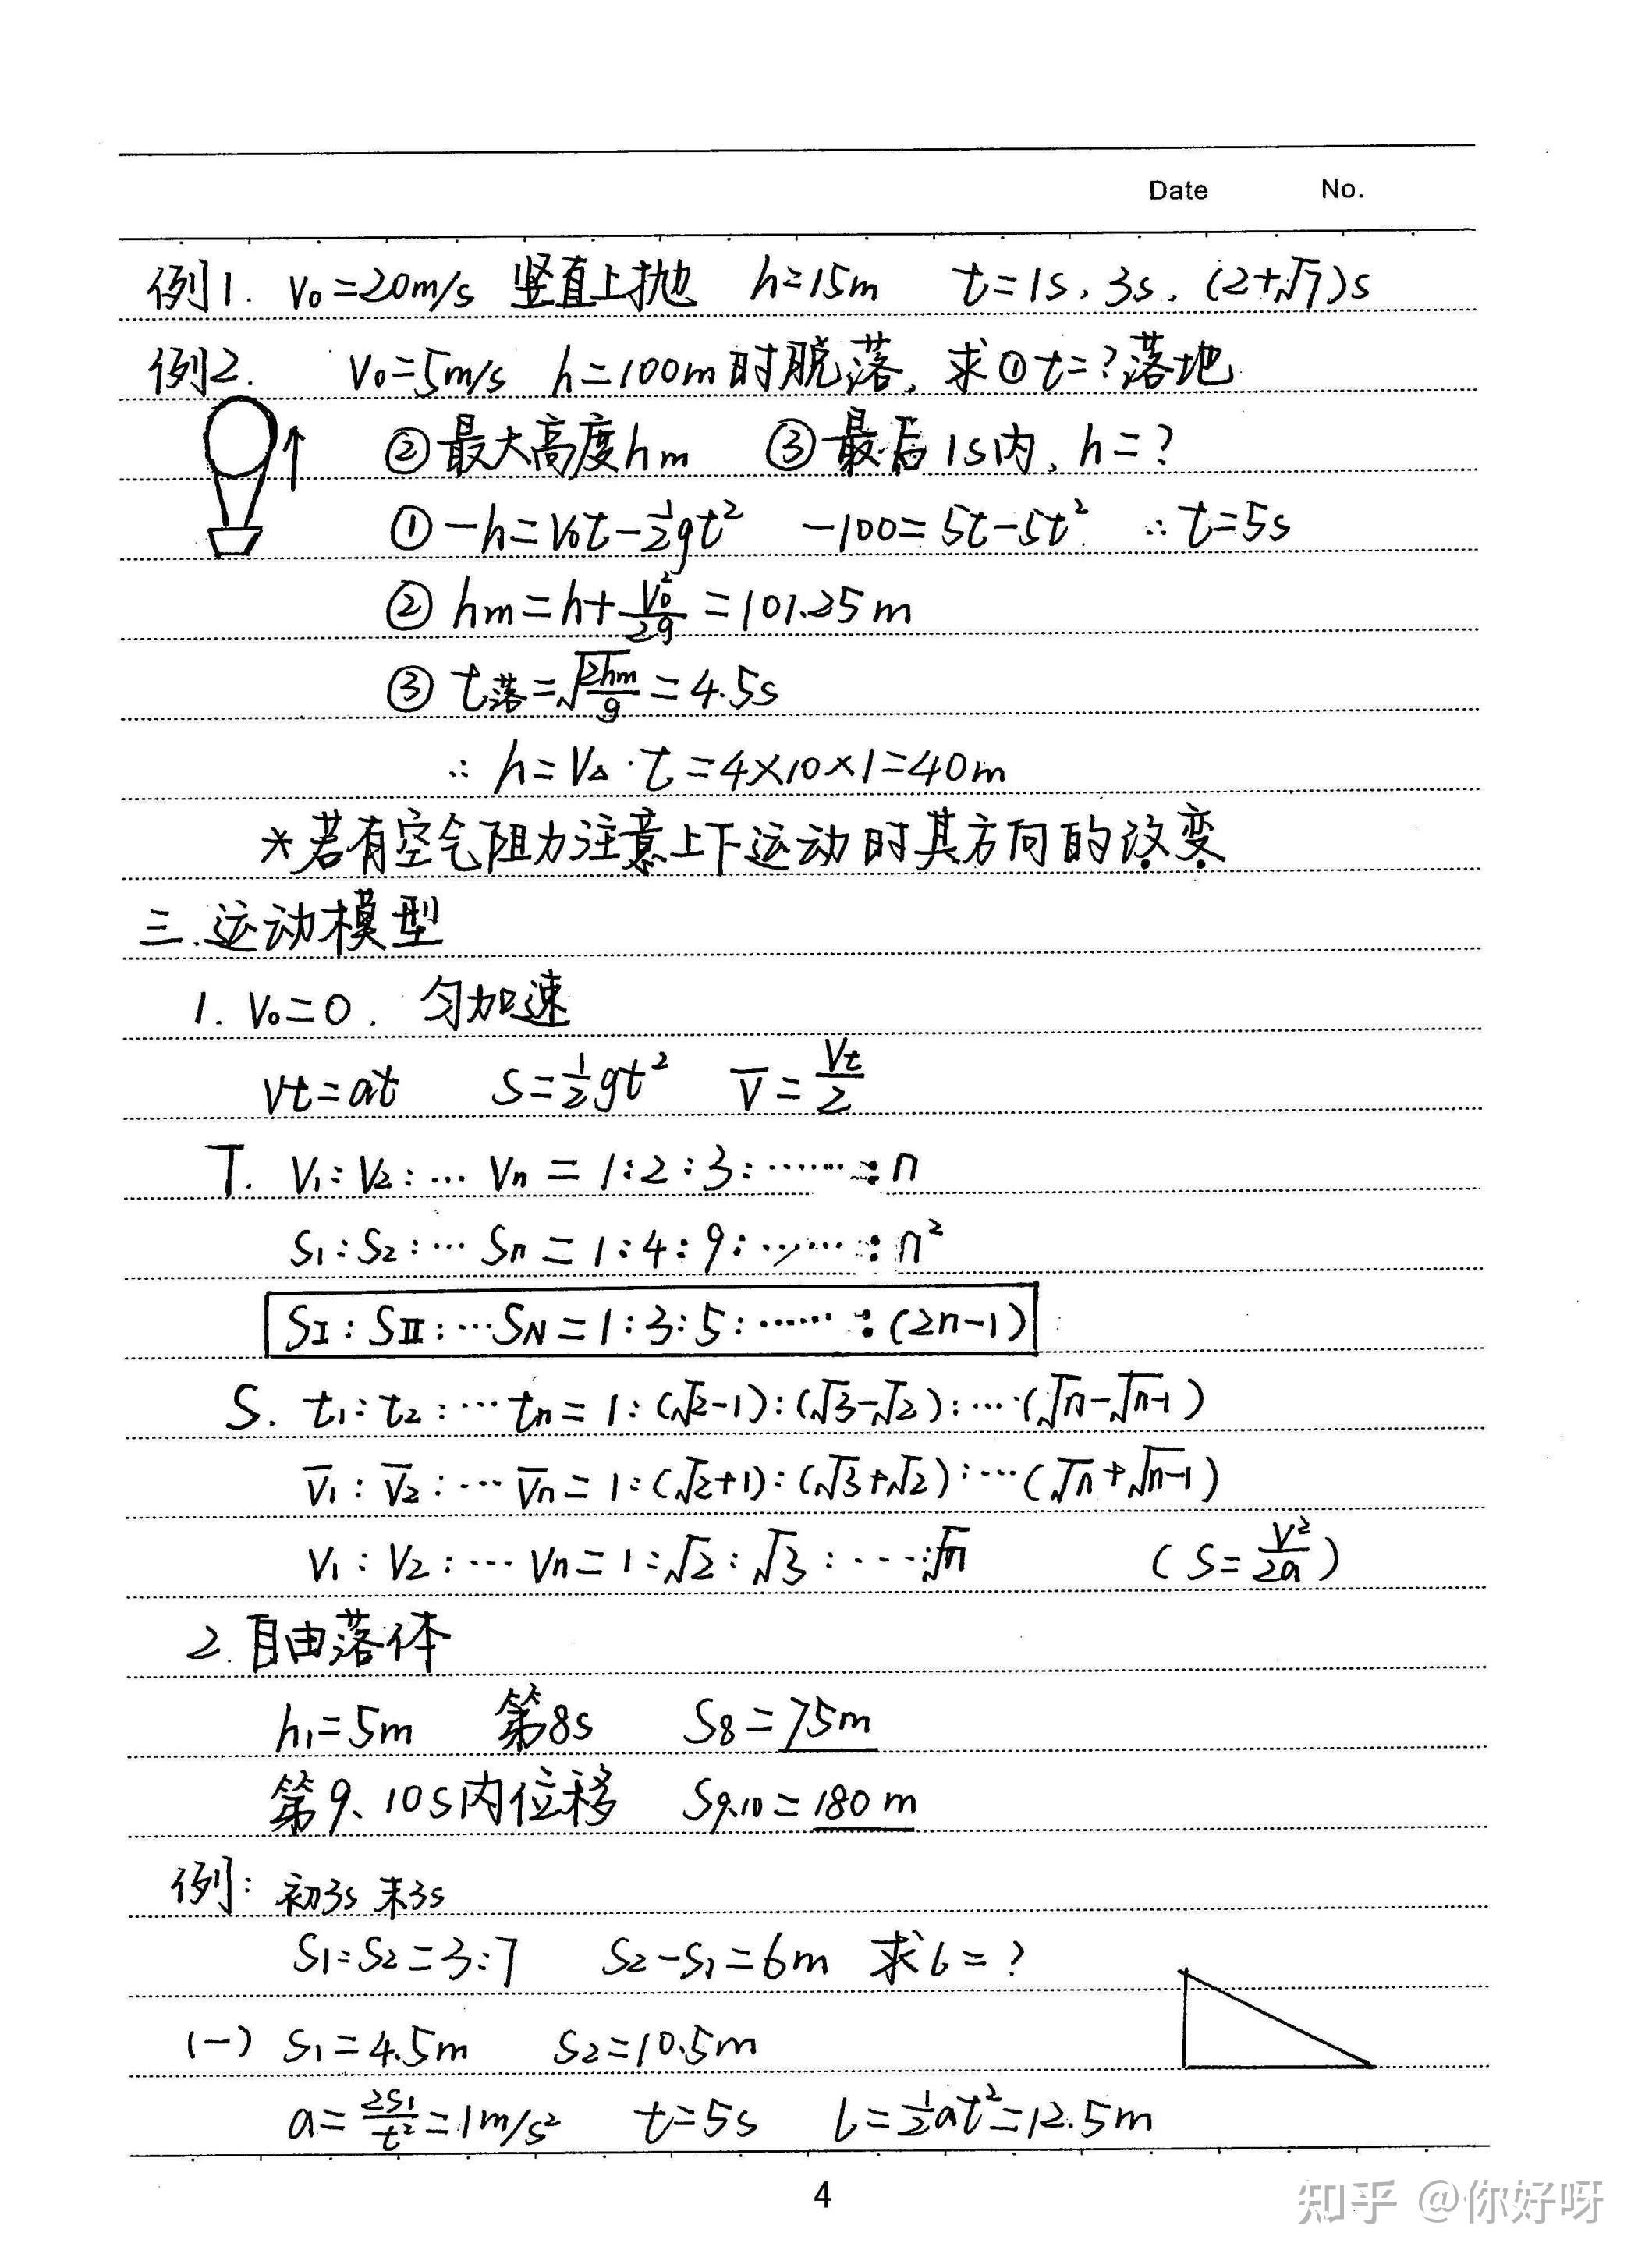 Date No.
例1. V₀=20m/s 竖直上抛 h=15m t=1s, 3s, (2+√7)s
例2. V₀=5m/s h=100m时脱落, 求①t=?落地
②最大高度hm ③最后1s内, h=?
①-h=V₀t-½gt² -100=5t-5t² ∴t=5s
②hm=h+V₀²/2g=101.25m
③t落=√(2hm/g)=4.5s
∴h=V△·t=4×10×1=40m
*若有空气阻力注意上下运动时其方向的改变
三.运动模型
1. V₀=0. 匀加速
Vt=at S=½gt² V̅=Vt/2
T. V₁:V₂:…Vn=1:2:3:……:n
S₁:S₂:…Sn=1:4:9:……:n²
SⅠ:SⅡ:…SN=1:3:5:……:(2n-1)
S. t₁:t₂:…tn=1:(√2-1):(√3-√2):…(√n-√(n-1))
V̅₁:V̅₂:…V̅n=1:(√2+1):(√3+√2):…(√n+√(n-1))
V₁:V₂:…Vn=1:√2:√3:…:√n (S=V²/2a)
2.自由落体
h₁=5m 第8s S₈=75m
第9、10s内位移 S₉.₁₀=180m
例: 初3s 末3s
S₁:S₂=3:7 S₂-S₁=6m 求l=?
(一) S₁=4.5m S₂=10.5m
a=2S₁/t²=1m/s² t=5s l=½at²=12.5m
4
知乎 @你好呀